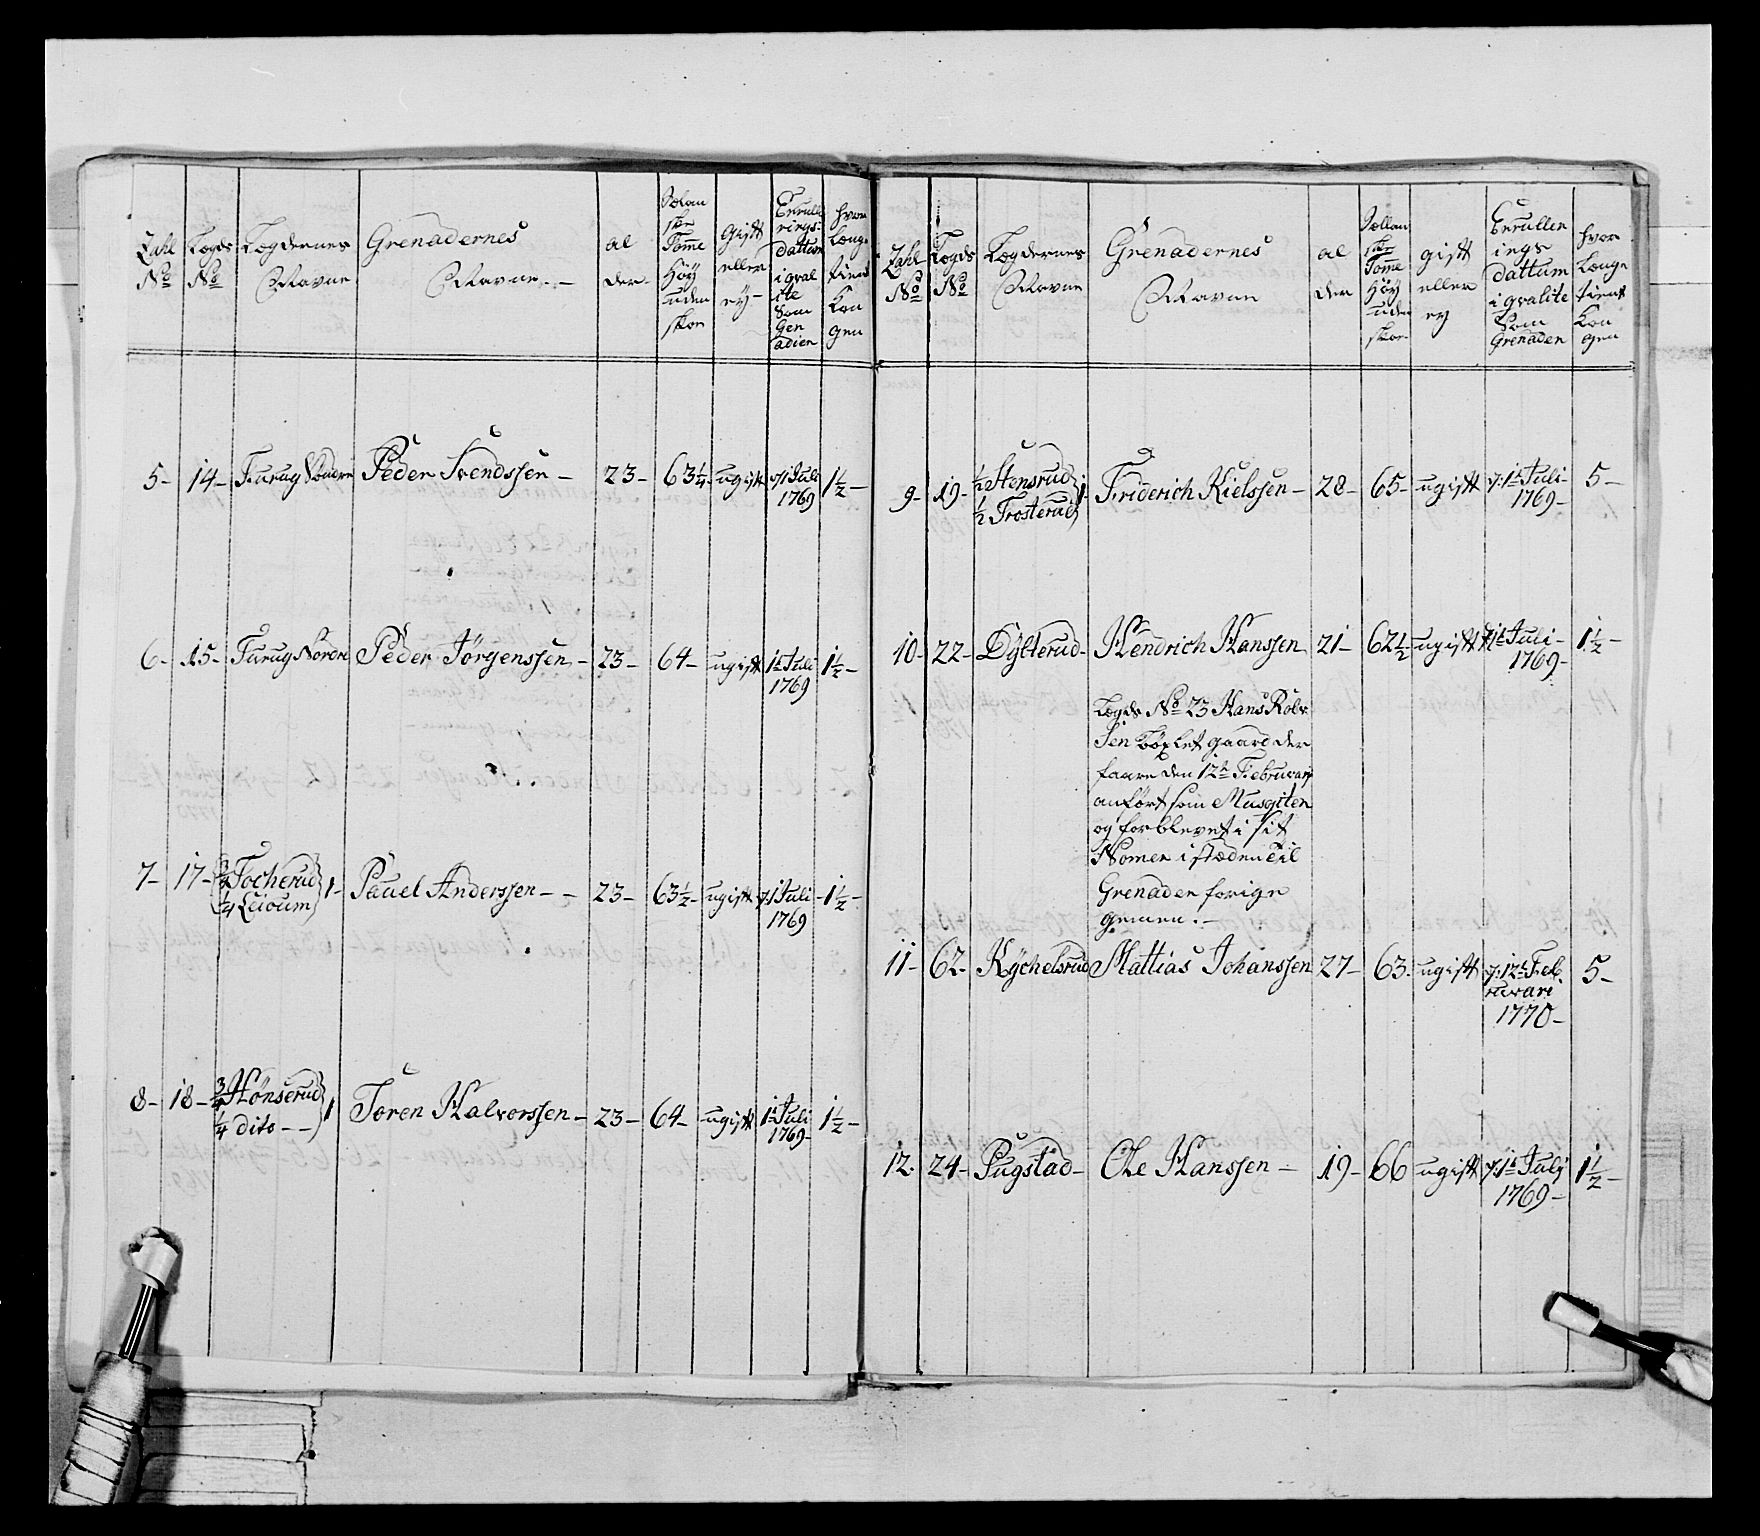 Zahl No
Lægds No
Lægdernes Navne
Grenaderernes Navne. -
al der
Sælan ske Tomme Høy uden skoe
Gift eller ey -
Enrulle rings Dattum i qval ite Som Gren adier
hvor længe tient Kon gen
5 - 14 - Furug Søndre Peder Svendssen - 23 - 63 1/4 - ugift d: 1 Juli 1769 1 1/2 -
6 - 15 - Furug Nordre Peder Jörgenssen - 23 - 64 - ugift 1t Juli 1769 1 1/2 -
7 - 17 - 3/4 Tocherud 1/4 Leioum } 1 - Pauel Anderssen - - 23 - 63 1/2 - ugift d: 1 Juli 1769 - 1 1/2 -
8 - 18 - 3/4 Hönserud 1/4 dito - - } 1 Toren Halvorssen - 23 - 64 - ugift 1t Juli 1769 - 1 1/2 -
Zahl No
Lægds No
Lægdernes Navne
Grenadernes Navne
al der
Sællan ske Tomme Høy uden skoe
gift eller ey
Enrullerings dattum i qvalite Som Grenader
hvor længe tient Kon gen
9 - 19 - 1/2 Stensrud 1/2 Trosterud } 1 - Friderich Nielssen - 28 - 65 - ugift d: 1t Juli - 1769 - 5 -
10 - 22 - Dytterud - Hendrich Hanssen 21 - 62 1/2 - ugift d: 1t Juli - 1769 - 1 1/2 -
Lægds No 23 Hans Rolv
Sen böxlet gaard der
faare den 12te Februarj
anfört som Musqiter
og forblevet i sit
Nomer i stæden til
Grenader forige
gemen. -
11 - 62 - Kychelsrud Mattias Johanssen 27 - 63 - ugift d: 12t Feb ruvari 1770 - 5 -
12 - 24 - Pugstad - Ole Hanssen - 19 - 66 ugift d: 1t Julj 1769 - 1 1/2 -